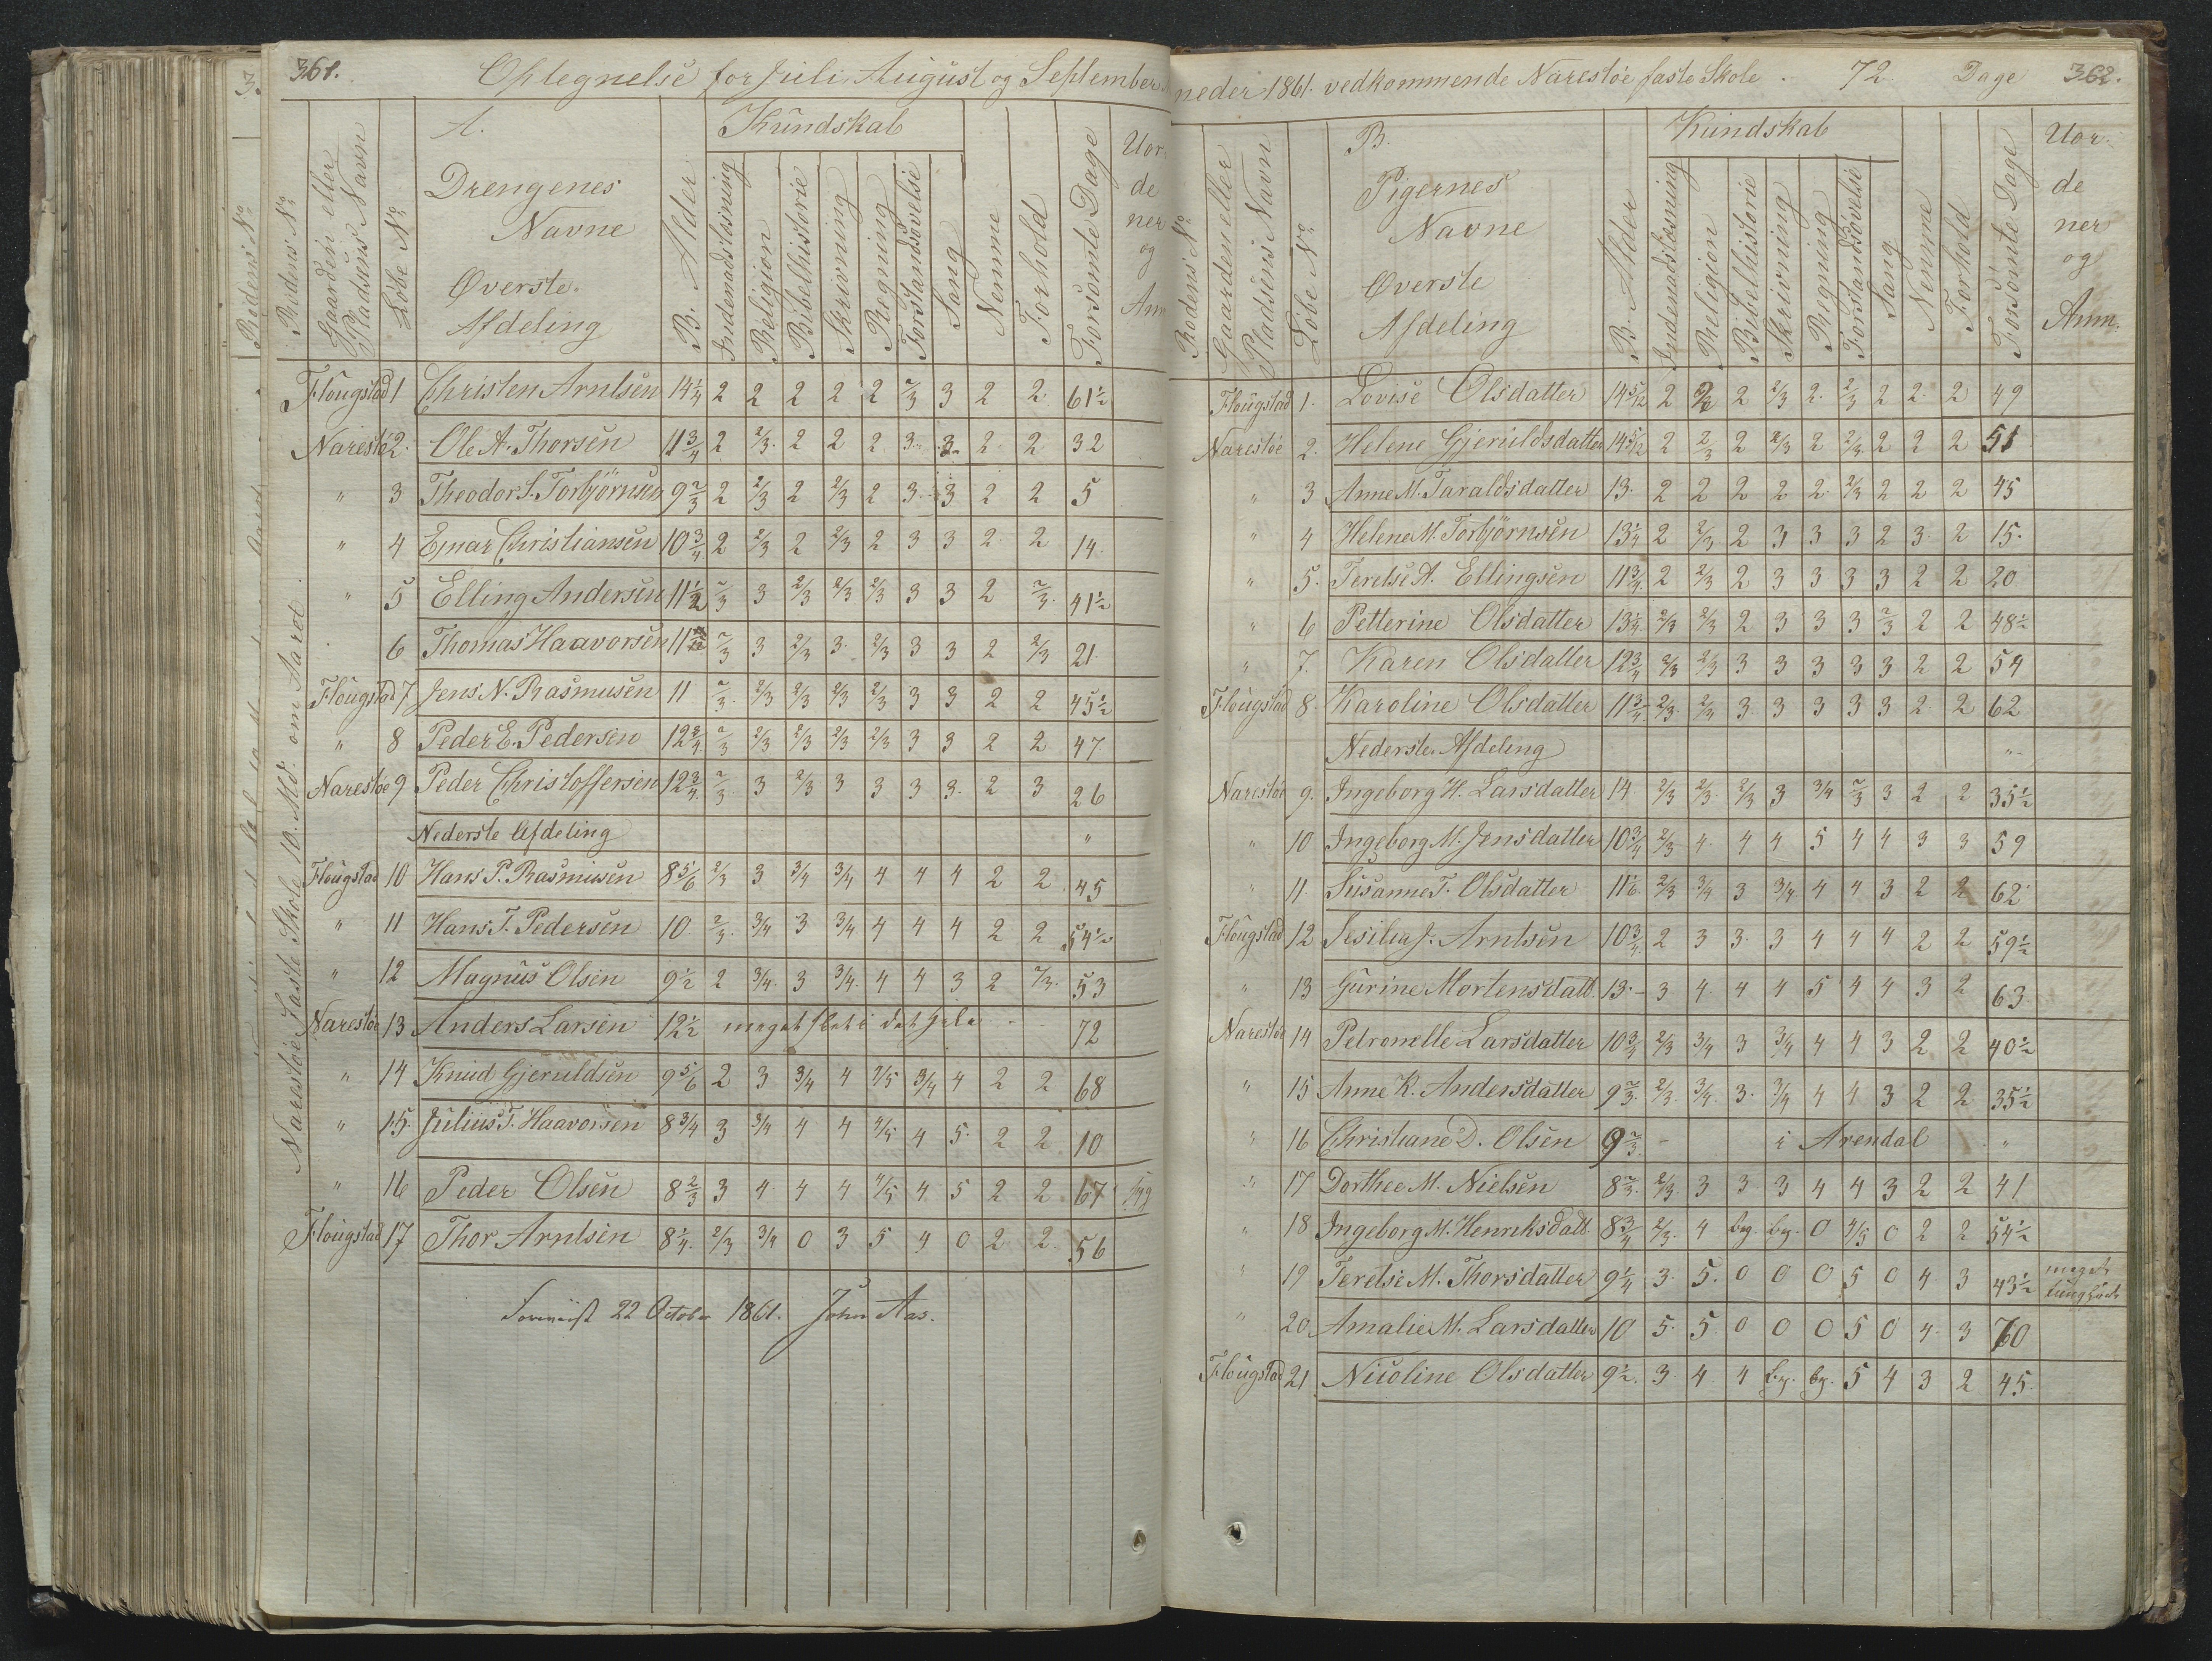 361.
Optegnelse for Juli, August og September
A.
Kundskab
Uor
de
ner
og
Anm
Rodens No
Gaarden eller
Pladsens Navn
Löbe No
Drengenes
Navne
Øverste
Afdeling
B. Alder
Indenadslæsning
Religion
Bibelhistorie
Skrivning
Regning
Forstandsövelse
Sang
Nemme
Forhold
Forsömte Dage
Narestöe Faste Skole 10. Md. om Aaret
Flougstad 1 Christen Arntsen 14 1/4 2 2 2 2 2 2/3 3 2 2 61 1/2
Narestö 2. Ole A. Thorsen 11 3/4 2 2/3 2 2 2 3 3 2 2 32
" 3 Theodor S. Torbjörnsen 9 2/3 2 2/3 2 2/3 2 3 3 2 2 5
" 4 Ejnar Christiansen 10 3/4 2 2/3 2 2/3 2 3 3 2 2 14
" 5 Elling Andersen 11 1/2 2/3 3 2/3 2/3 2/3 3 3 2 2/3 41 1/2
6 Thomas Haavorsen 11 2/3 3 2/3 3 2/3 3 3 2 2/3 21
Flougstad 7 Jens N. Rasmusen 11 2/3 2/3 2/3 2/3 2/3 3 3 2 2 45 1/2
" 8 Peder E. Pedersen 12 3/4 2/3 2/3 2/3 2/3 2/3 3 3 2 2 47
Narestöe 9 Peder Christoffersen 12 3/4 2/3 3 2/3 3 3 3 3 2 3 26
Nederste Afdeling "
Flougstad 10 Hans P. Rasmusen 8 5/6 2/3 3 3/4 3/4 4 4 4 2 2 45
" 11 Hans T. Pedersen 10 2/3 3/4 3 3/4 4 4 4 2 2 54 1/2
" 12 Magnus Olsen 9 1/2 2 3/4 3 3/4 4 4 3 2 2/3 53
Narestöe 13 Anders Larsen 12 1/2 meget slet i det hele 72
" 14 Knud Gjeruldsen 9 5/6 2 3 3/4 4 4/5 3/4 4 2 2 68
" 15 Julius T. Haavorsen 8 3/4 3 3/4 4 4 4/5 4 5 2 2 10
" 16 Peder Olsen 8 2/3 3 4 4 4 4/5 4 5 2 2 67 syg
Flougstad 17 Thor Arntsen 8 1/4 2/3 3/4 0 3 5 4 0 2 2 56
22 October 1861. John Aas.
neder 1861. vedkommende Narestöe faste Skole. 72 Dage 362.
B.
Kundskab
Uor.
de
ner
og
Anm.
Rodens No
Gaarden eller
Pladsens Navn
Löbe No
Pigernes
Navne
Øverste
Afdeling
B. Alder
Indenadslæsning
Religion
Bibelhistorie
Skrivning
Regning
Forstandsövelse
Sang
Nemme
Forhold
Forsömte Dage
Flougstad 1. Lovise Olsdatter 14 5/12 2 2 2/3 2 2/3 2 2 2 49
Narestöe 2. Helene Gjeruldsdatter 14 5/12 2 2/3 2 2/3 2 2/3 2 2 2 51
" 3 Anne M. Taraldsdatter 13 2 2 2 2 2 2/3 2 2 2 45
" 4 Helene M. Torbjörnsen 13 1/4 2 2/3 2 3 3 3 2 3 2 15
" 5. Teretse A. Ellingsen 11 3/4 2 2/3 2 3 3 3 3 2 2 20
" 6 Petterine Olsdatter 13 1/4 2/3 2/3 2 3 3 3 2/3 2 2 48 1/2
" 7. Karen Olsdatter 12 3/4 2/3 2/3 3 3 3 3 3 2 2 54
Flougstad 8. Karoline Olsdatter 11 3/4 2/3 2/3 3 3 3 3 3 2 2 62
Nederste Afdeling "
Narestöe 9. Ingeborg H. Larsdatter 14 2/3 2/3 2/3 3 3/4 2/3 3 2 2 35 1/2
" 10 Ingeborg M. Jensdatter 10 3/4 2/3 4 4 4 5 4 4 3 3 59
" 11 Susanne T. Olsdatter 11 1/6 2/3 3/4 3 3/4 4 4 3 2 2 62
Flougstad 12 Sesilia J. Arntsen 10 3/4 2 3 3 3 4 4 4 2 2 59 1/2
" 13 Gurine Mortensdatt. 13 3 4 4 4 5 4 4 3 2 63
Narestöe 14 Petronelle Larsdatter 10 3/4 2/3 3/4 3 3/4 4 4 3 2 2 40 1/2
" 15 Anne K. Andersdatter 9 2/3 2/3 3/4 3 3/4 4 4 3 2 2 35 1/2
" 16 Christiane D. Olsen 9 2/3 - i Arendal "
" 17 Dorthee M. Nielsen 8 2/3 2/3 3 3 3 4 4 3 2 2 41
" 18 Ingeborg M. Henriksdatt 8 3/4 2/3 4 bg. bg. 0 4/5 0 2 2 54 1/2
" 19 Teretse M. Thorsdatter 9 1/4 3 5 0 0 0 5 0 4 3 43 1/2 meget
" 20 Amalie M. Larsdatter 10 5 5 0 0 0 5 0 4 3 70
Flougstad 21 Nicoline Olsdatter 9 1/2 3 4 4 bg. bg. 5 4 3 2 45